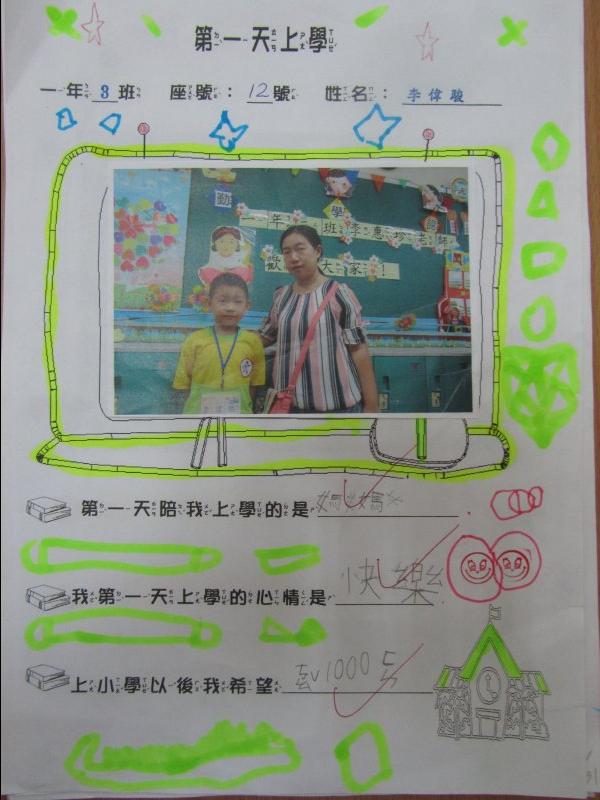 第一天上學
一年3班 座號:12號 姓名:李偉駿
勤 學
一年 班李惠珍老師
歡 大家!
第一天陪我上學的是媽媽
我第一天上學的心情是快樂
上小學以後我希望ㄎㄠˇ1000ㄈㄣ